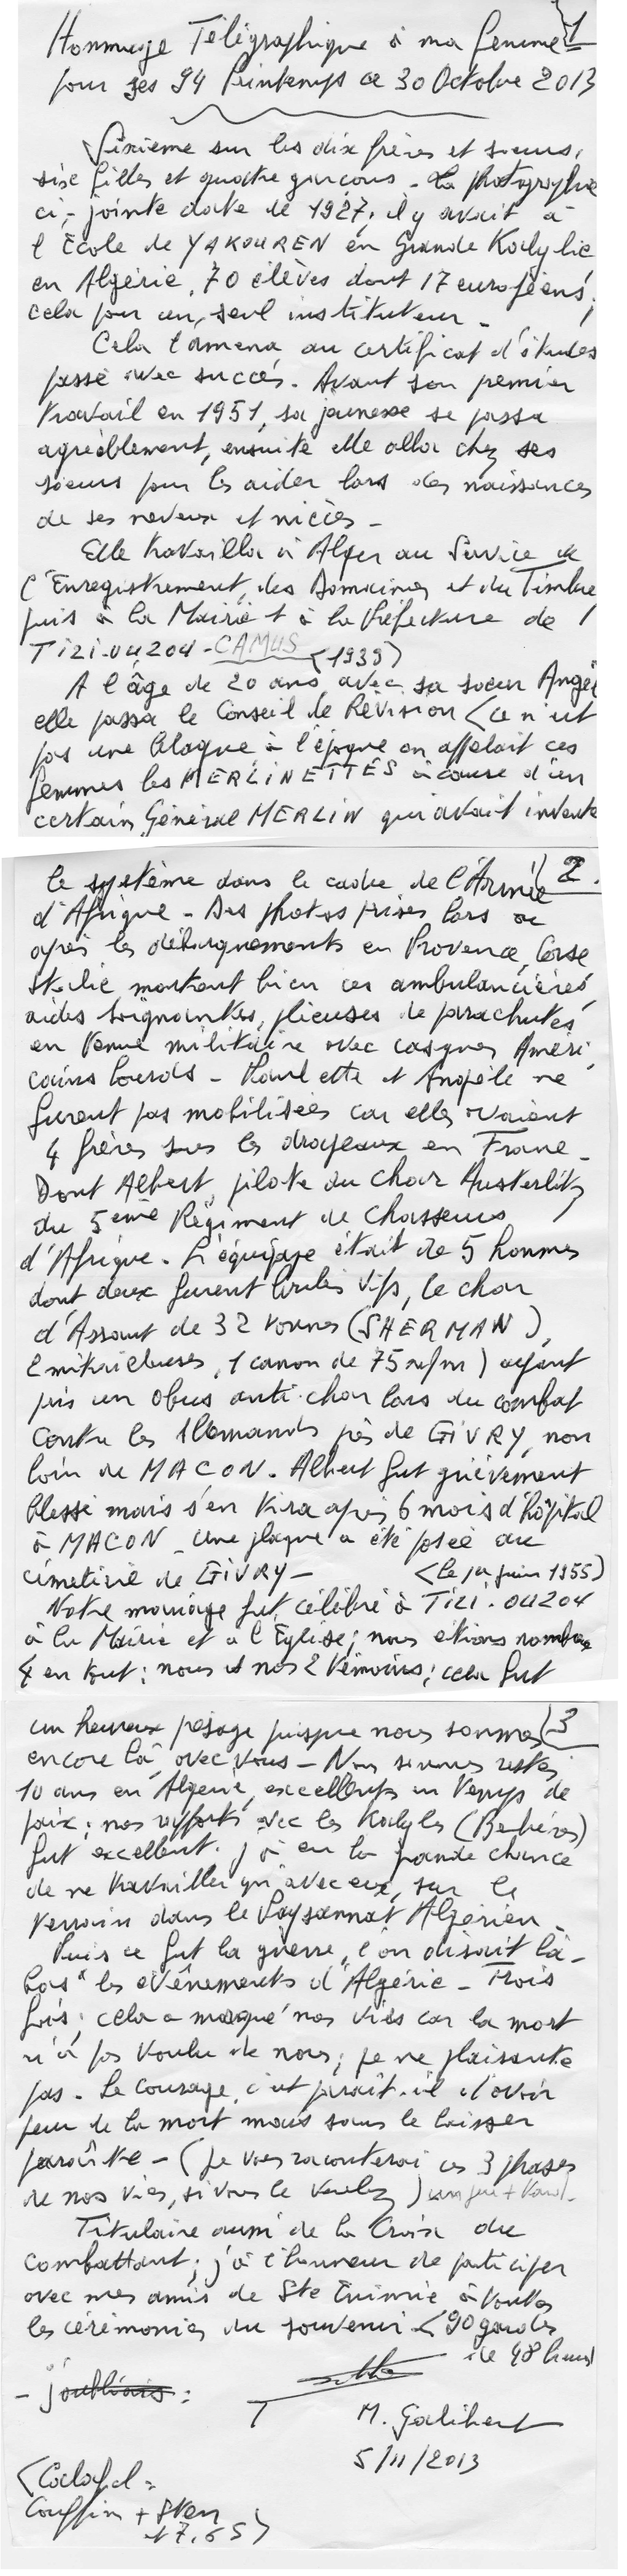 Hommage Télégraphique à ma femme 1
pour ses 94 Printemps ce 30 Octobre 2013
Sixième sur les dix frères et soeurs,
six filles et quatre garçons - La photographie
ci-jointe date de 1927, il y avait à
l'École de YAKOUREN en Grande Kabylie
en Algérie, 70 élèves dont 17 européens,
cela pour un seul instituteur -
Cela l'amena au certificat d'études
passé avec succès. Avant son premier
travail en 1951, sa jeunesse se passa
agréablement, ensuite elle alla chez ses
soeurs pour les aider lors des naissances
de ses neveux et nièces -
Elle travailla à Alger au Service de
l'Enregistrement, des Domaines et du Timbre,
puis à la Mairie et à la Préfecture de
TIZI-OUZOU - CAMUS (1939)
A l'âge de 20 ans, avec sa soeur Angèle
elle passa le Conseil de Révision (ce n'est
pas une blague à l'époque on appelait ces
femmes les MERLINETTES à cause d'un
certain Général MERLIN qui avait inventé
2.
le système dans le cadre de l'Armée
d'Afrique - Des photos prises lors ou
après les débarquements en Provence, Corse
Italie montrent bien ces ambulancières,
aides soignantes, plieuses de parachutes
en tenue militaire avec casques Améri
cains lourds - Paulette et Angèle ne
furent pas mobilisées car elles avaient
4 frères sous les drapeaux en France -
Dont Albert, pilote du char Austerlitz
du 5ème Régiment de Chasseurs
d'Afrique. L'équipage était de 5 hommes
dont deux furent brulés vifs, le char
d'Assaut de 32 tonnes (SHERMAN),
2 mitrailleuses, 1 canon de 75 m/m) ayant
pris un obus anti-char lors du combat
contre les Allemands près de GIVRY, non
loin de MACON. Albert fut grièvement
blessé mais s'en tira après 6 mois d'hôpital
à MACON - Une plaque a été posée au
cimetière de GIVRY - (le 1er juin 1955)
Notre mariage fut célébré à TIZI-OUZOU
à la Mairie et à l'Eglise; nous étions nombre
4 en tout: nous et nos 2 témoins; cela fut
3
un heureux présage puisque nous sommes
encore là, avec vous - Nous sommes restés
10 ans en Algérie, excellents en temps de
paix; nos rapports avec les Kabyles (Berbères)
fut excellent. J'ai eu la grande chance
de ne travailler qu'avec eux, sur le
terrain dans le Paysannat Algérien -
Puis ce fut la guerre, l'on disait là-
bas "les évènements d'Algérie - Trois
fois, cela a marqué nos vies car la mort
n'a pas voulu de nous; je ne plaisante
pas - Le courage, c'est paraît-il d'avoir
peur de la mort mais sans le laisser
paraître - (je vous raconterai ces 3 phases
de nos vies, si vous le voulez)
Titulaire aussi de la Croix du
Combattant; j'ai l'honneur de participer
avec mes amis de Ste Enimie à toutes
les cérémonies du souvenir (90 gardes
de 48 heures)
- j'oubliais:
M. Galibert
5/11/2013
Couffin + Sten
et 7,65)